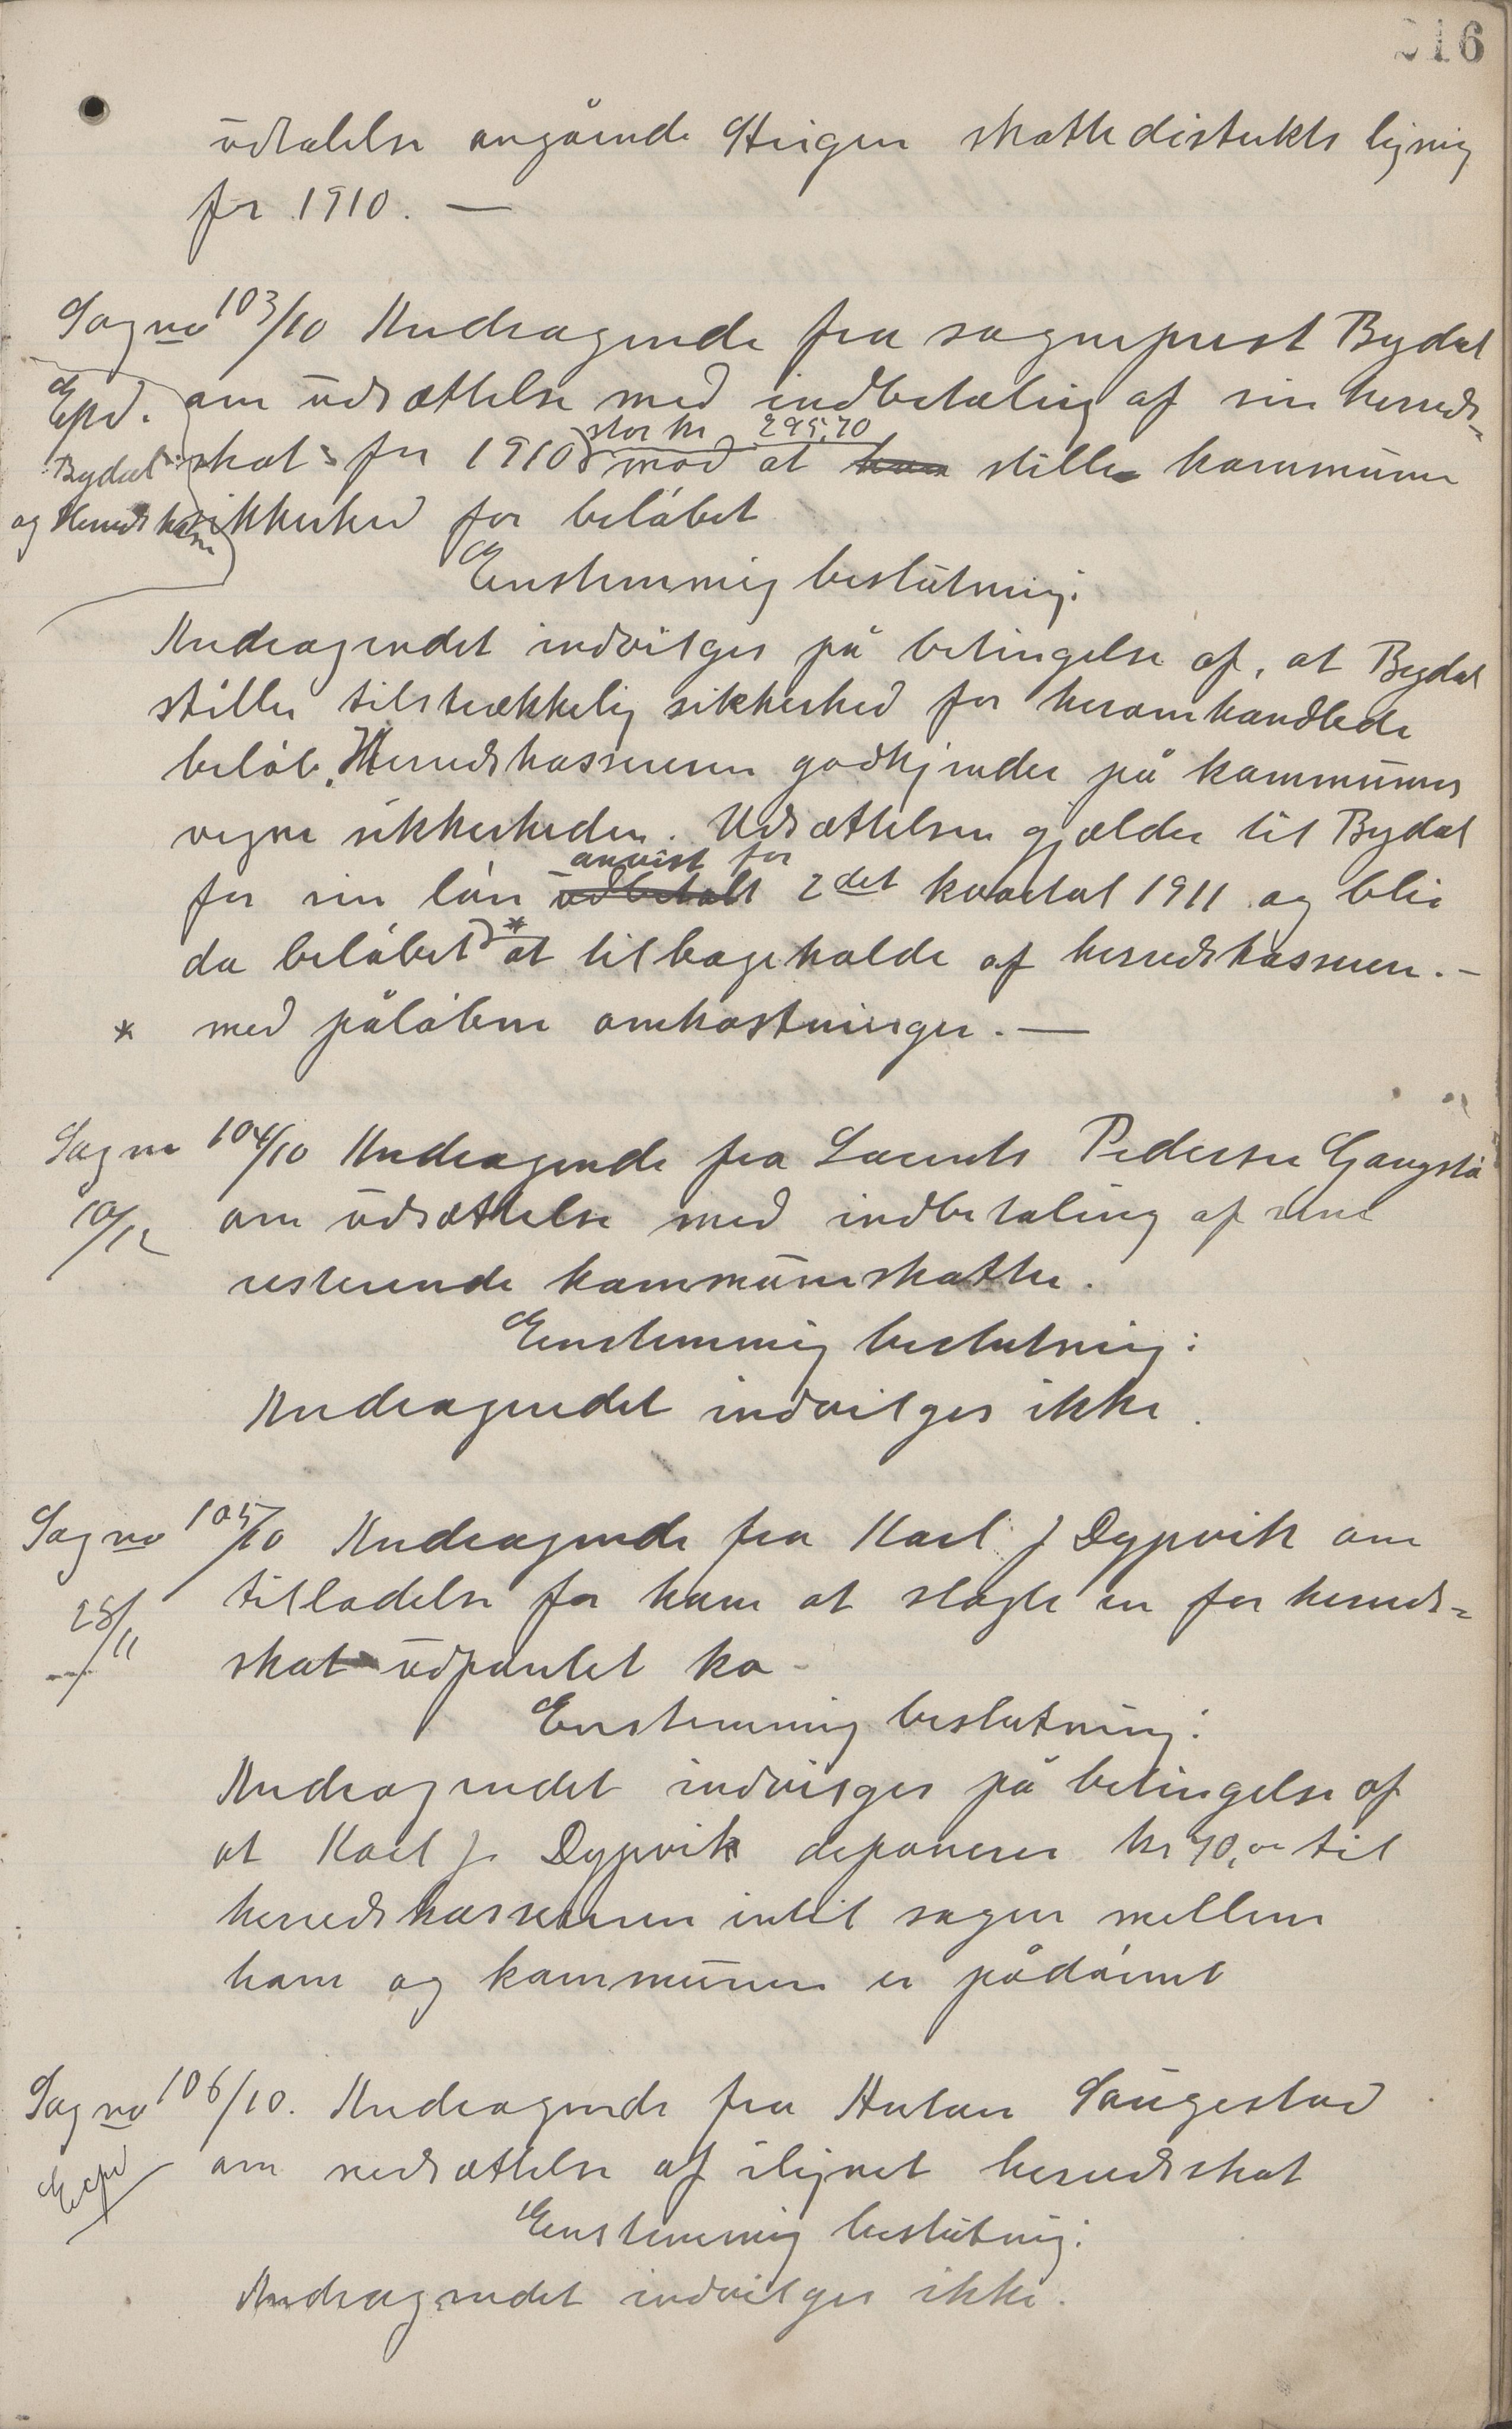 216
udtalelse angående Heigen skattedistrikts ligning
for 1910. —
Sag no 103/10 Andragende fra sogneprest Bydal
Expd. om udsættelse med indbetaling af sin herreds-
stor kr 295,70
Bydal skat for 1910 mod at stille kommunen
og Herredskasse sikkerhed for beløbet
Enstemmig beslutning:
Andragendet indvilges på betingelse af, at Bydal
stiller tilstrækkelig sikkerhed for heromhandlede
beløb. Herredskassereren godkjender på kommunens
vegne sikkerheden. Udsættelsen gjælder til Bydal
anvist for
får sin løn udbetalt 2det kvartal 1911 og blir
da beløbet * at tilbageholde af herredskasseren. —
* med påløbne omkostninger. —
Sag no 104/10 Andragende fra Laurits Pedersen Gangstå
10/12 om udsættelse med indbetaling af sine
resterende kommuneskatter.
Enstemmig beslutning:
Andragendet indvilges ikke.
Sag no 105/10 Andragende fra Karl J Dypvik om
tilladelse for ham at slagte en for herreds-
28/11
skat udpantet ko
Enstemmig beslutning:
Andragendet indvilges på betingelse af
at Karl J. Dypvik deponerer kr 70,00 til
herredskassereren indtil sagen mellem
ham og kommunen er pådømt
Sag no 106/10. Andragende fra Saugestad
Expd om nedsættelse af ilignet herredsskat
Enstemmig beslutning:
Andragendet indvilges ikke.